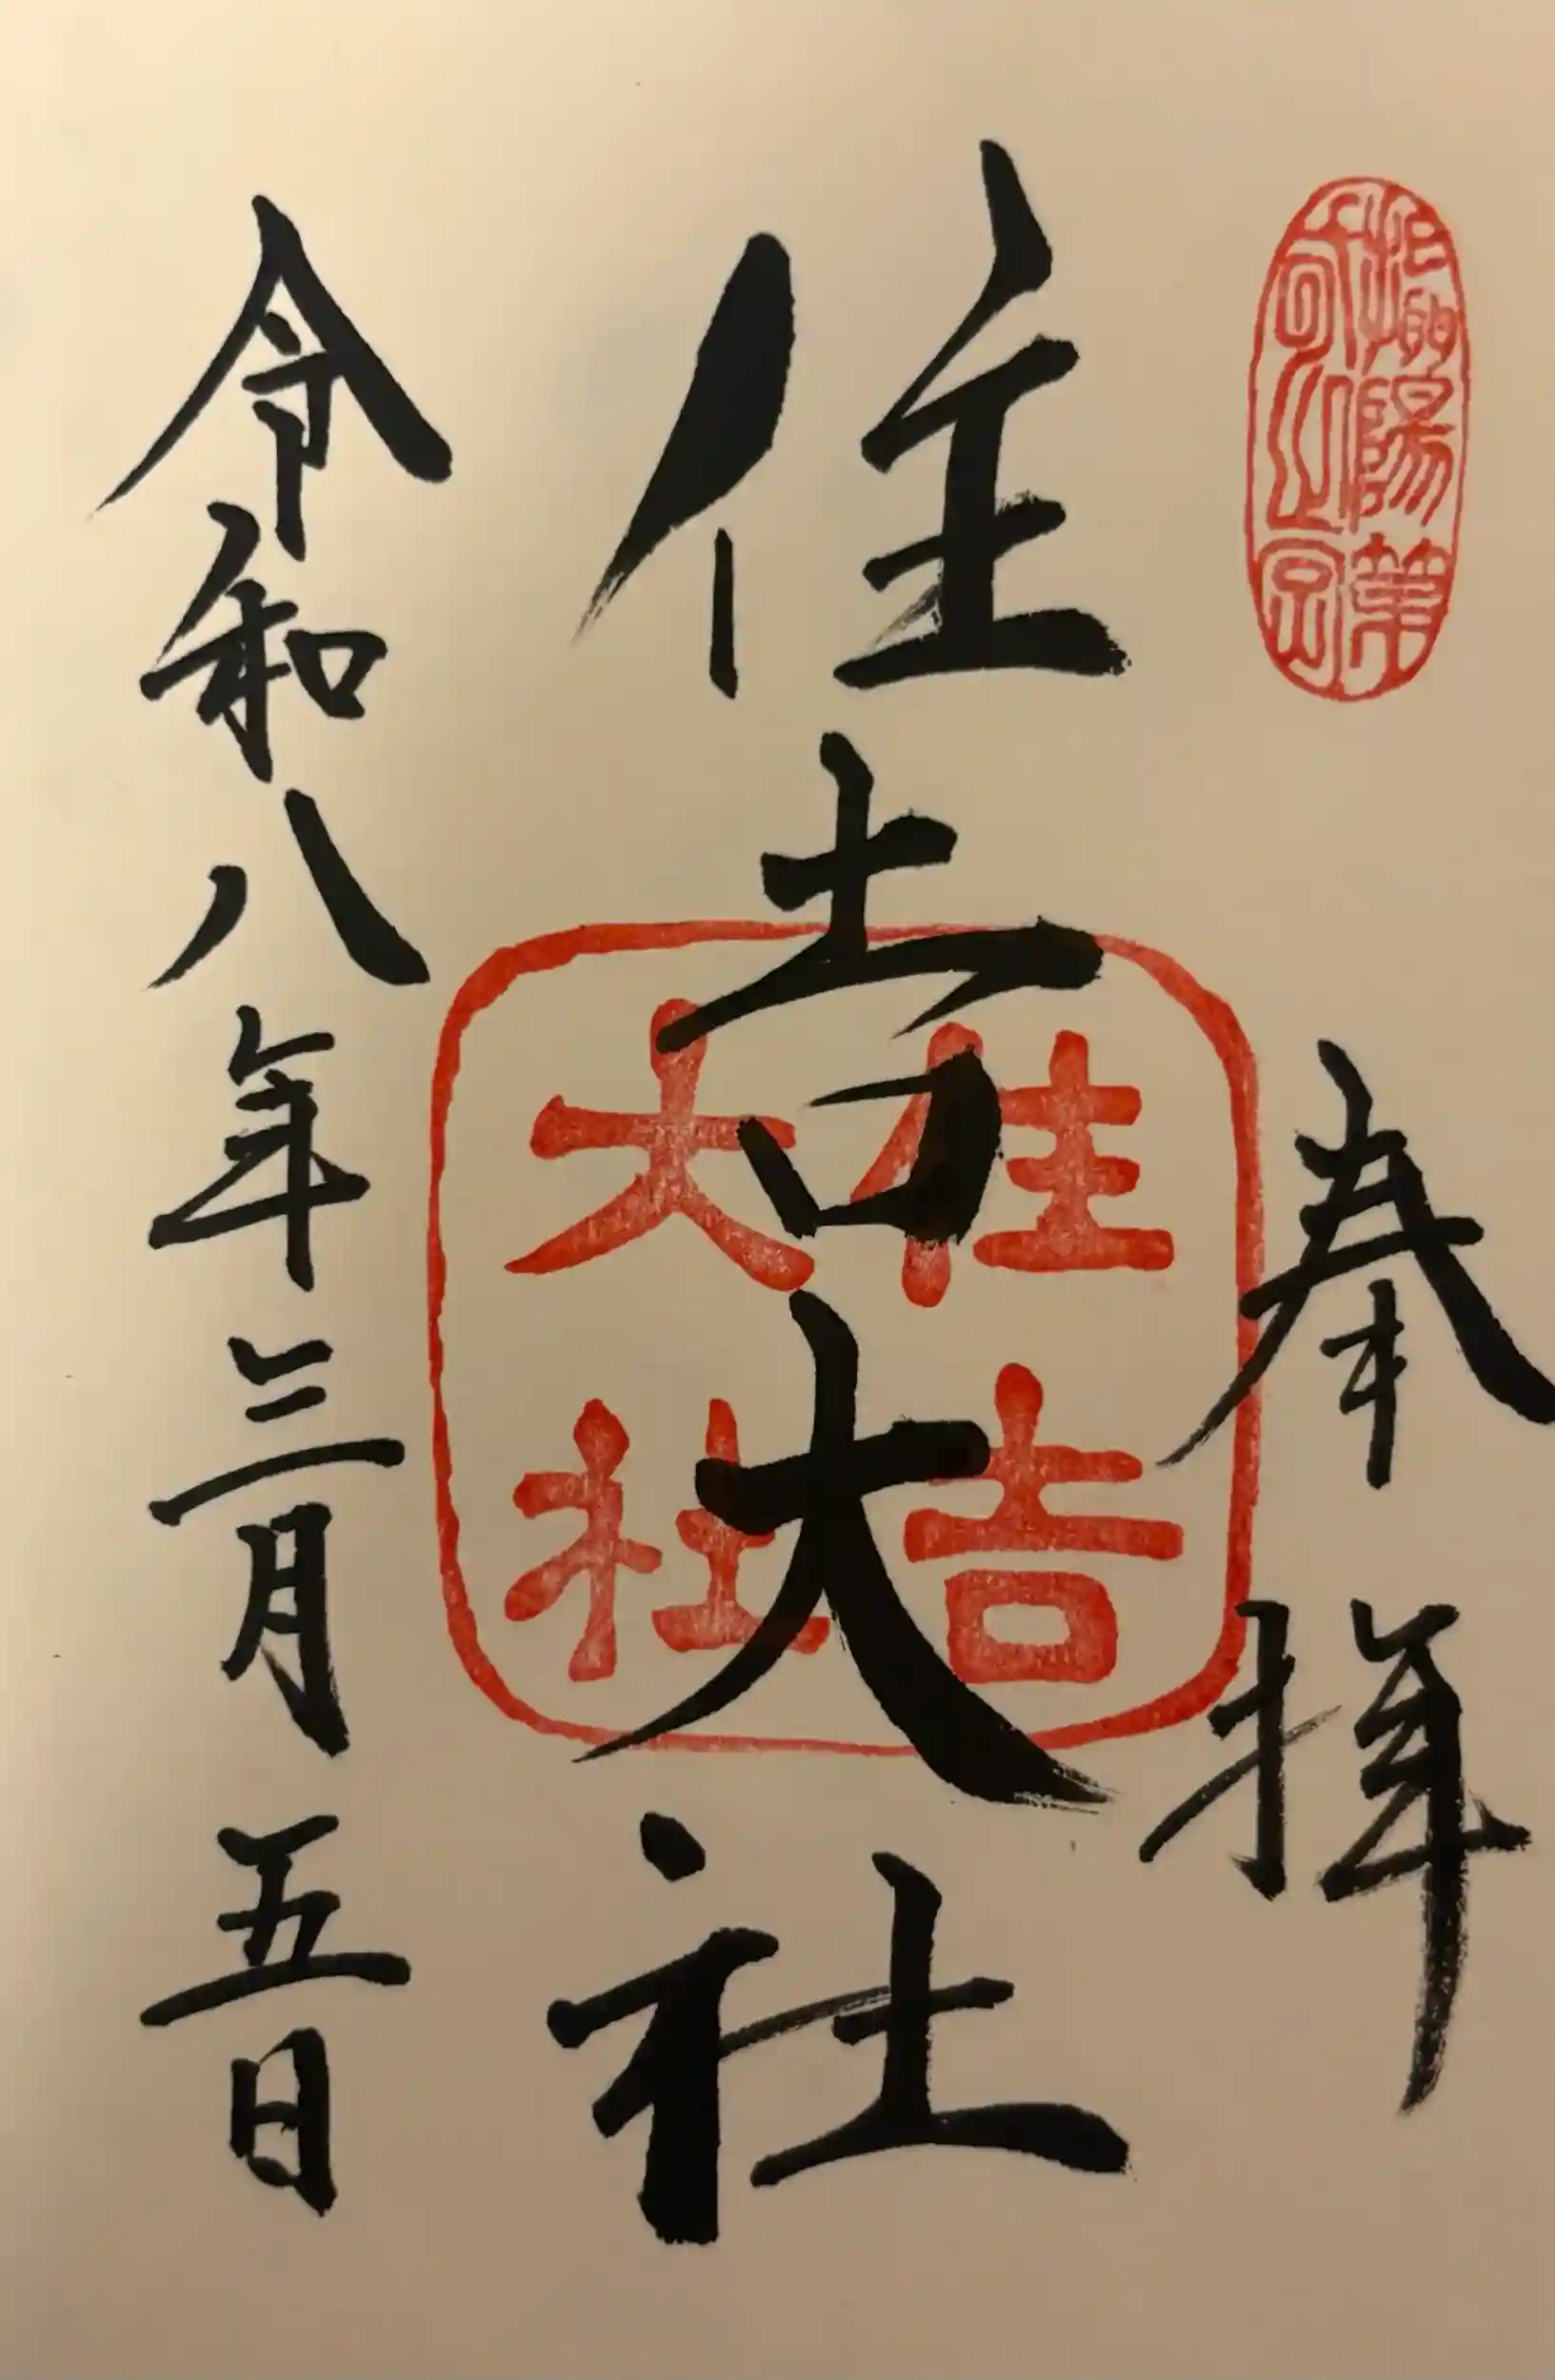 摂陽第
奉拝
住吉大社
住吉
大社
令和八年三月五日